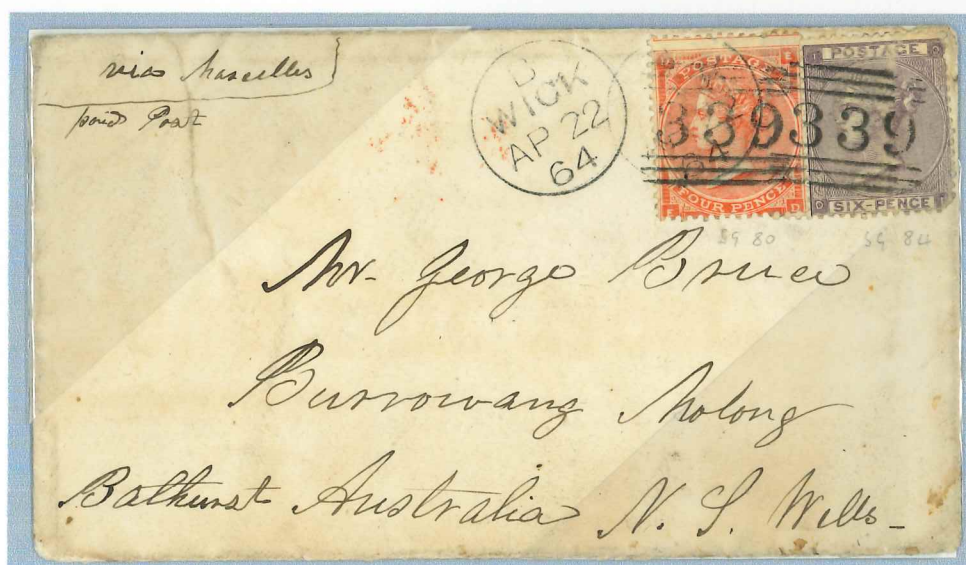 via Marseilles
paid Post
D
WICK
AP 22
64
POSTAGE
FOUR PENCE
POSTAGE
SIX-PENCE
339 339
SG 80
SG 84
Mr. George Bruce
Burrowang Molong
Bathurst Australia N. S. Wells-